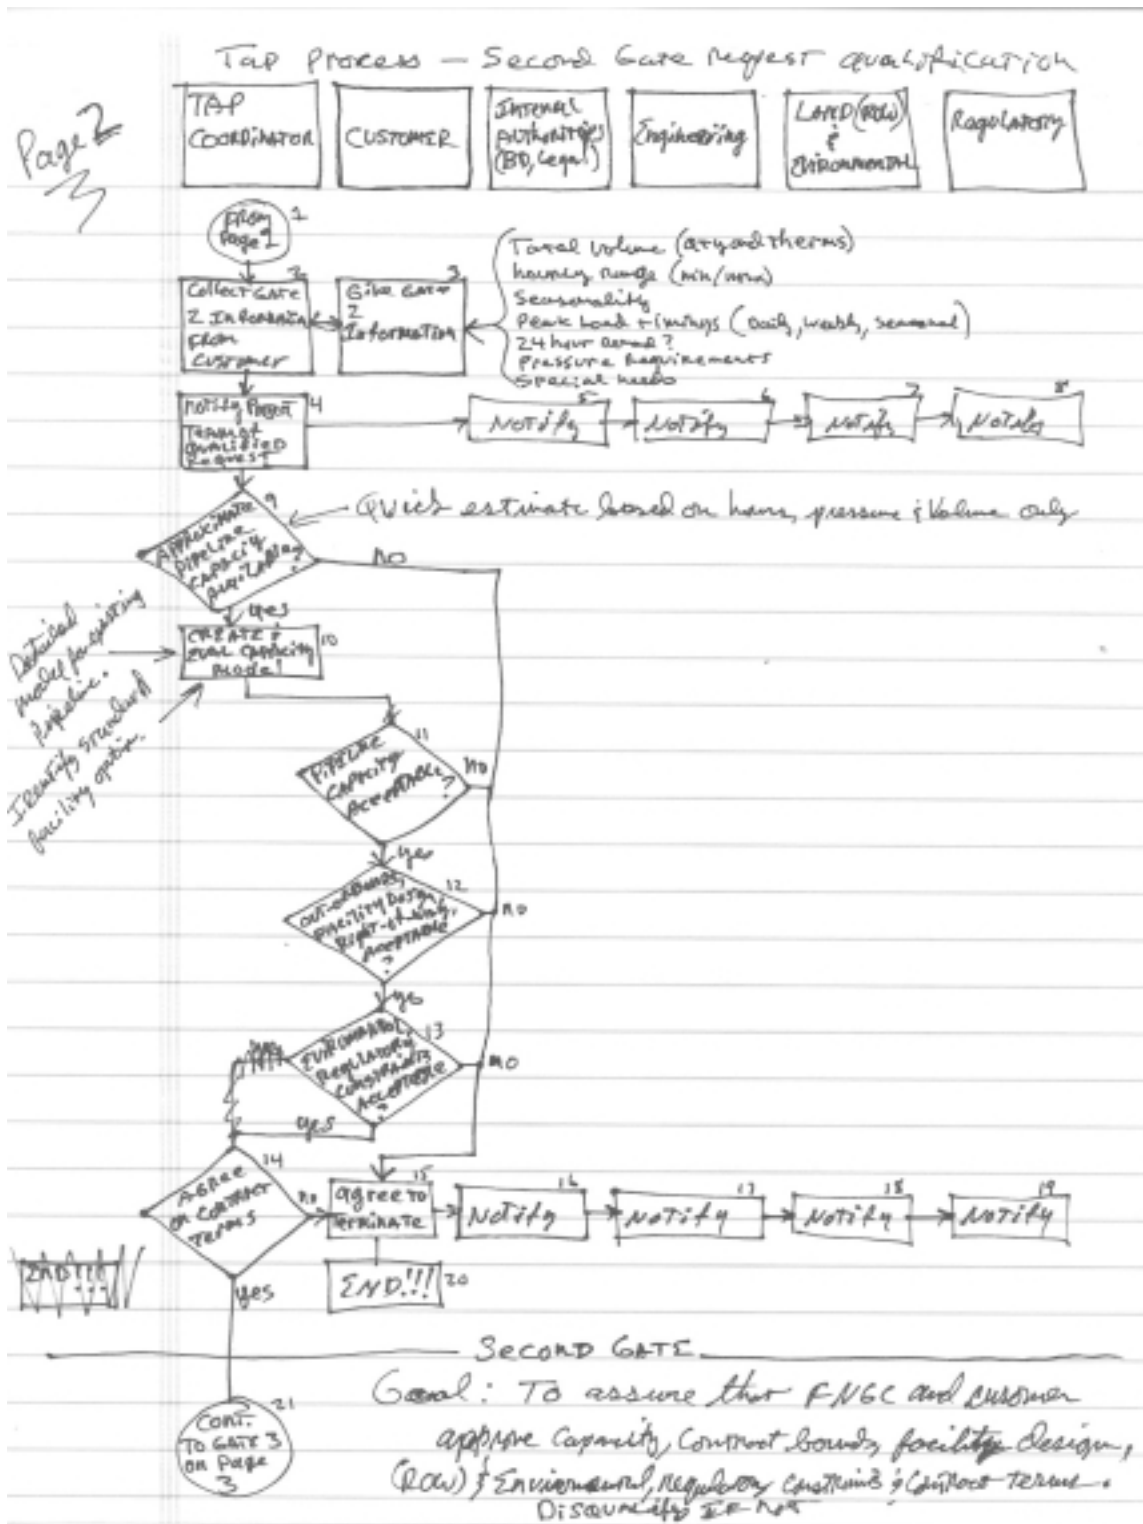 Tap Process — Second Gate Request Qualification
Page 2
3
TAP
COORDINATOR
CUSTOMER
Internal
Authorities
(BD, Legal)
Engineering
LAND (ROW)
&
ENVIRONMENTAL
Regulatory
From
Page 1
1
2
Collect GATE
2 Information
From
CUSTOMER
3
Give Gate
2
Information
Total Volume (
therms)
hourly range (min/max)
Seasonality
Peak Load timings (Daily, weekly, seasonal)
24 hour
?
Pressure Requirements
Special needs
4
Notify Project
Team of
QUALIFIED
Request
5
NOTify
6
NOTify
7
NOTify
8
NOTify
9
APPROXIMATE
PIPELINE
CAPACITY
AVAILABLE
?
Quick estimate based on hours, pressure & Volume only
NO
yes
10
CREATE &
EVAL CAPACITY
Model
Detailed
model for existing
Pipeline.
Identify standard
facility option.
11
PIPELINE
CAPACITY
ACCEPTABLE
?
no
yes
12
Out-of-Bounds,
FACILITY Design,
Right-of-way,
ACCEPTABLE
?
no
yes
13
REGULATORY
CONSTRAINTS
ACCEPTABLE
?
no
yes
14
AGREE
on CONTRACT
Terms
no
15
agree to
Terminate
16
NOTify
17
NOTify
18
NOTify
19
NOTify
END!!!
END!!!
20
yes
SECOND GATE
21
CONT.
TO GATE 3
on Page
3
Goal: To assure that FNGC and customer
approve Capacity, Contract bounds, facility design,
(ROW) & Environmental, regulatory constraints & Contract terms.
Disqualify IF NOT